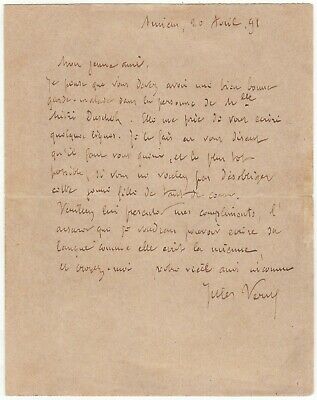 Amiens, 20 Avril, 98
Mon jeune ami.
Je pense que vous devez avoir une bien bonne
garde-malade dans la personne de Melle
Elle me prie de vous écrire
quelques lignes. Je le fais en vous disant
qu'il faut vous guérir, et le plus tôt
possible, si vous ne voulez pas désobliger
cette jeune fille de tout de cœur
Veuillez lui présenter mes compliments, l'
assurer que je voudrais pouvoir écrire sa
langue comme elle écrit la mienne,
et croyez-moi votre vieil ami inconnu
Jules Verne